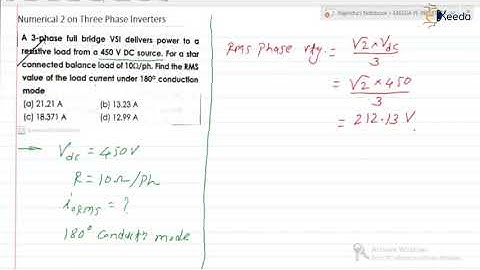 Numerical 2 on Three Phase Inverters
A 3-phase full bridge VSI delivers power to a
resistive load from a 450 V DC source. For a star
connected balance load of 10Ω/ph. Find the RMS
value of the load current under 180° conduction
mode
(a) 21.21 A (b) 13.23 A
(c) 18.371 A (d) 12.99 A
→ Vdc = 450V
R = 10Ω/ph
iorms = ?
180° conductn mode
Ekeeda
Rms phase vtg. = √2 × Vdc / 3
= √2 × 450 / 3
= 212.13 V
Activate Windows